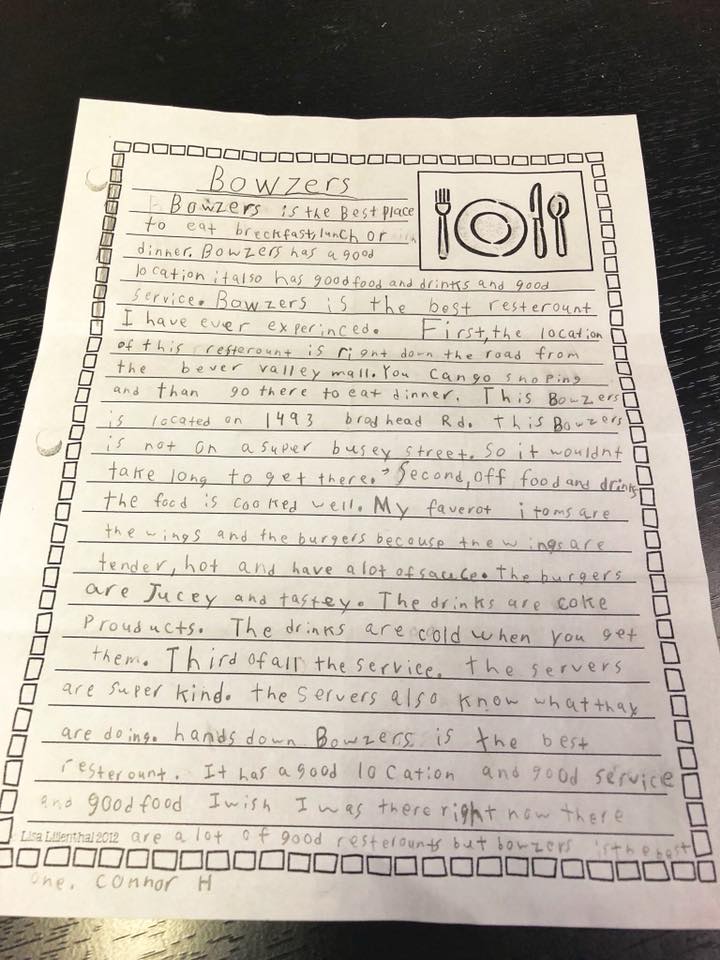 Bowzers
Bowzers is the Best place
to eat breckfast, lunch or
dinner. Bowzers has a good
location it also has good food and drinks and good
service. Bowzers is the best resterount
I have ever experinced. First, the location
of this resterount is right down the road from
the bever valley mall. You Can go snoping
and than go there to eat dinner. This Bowzers
is located on 1493 brodhead Rd. this Bowzers
is not on a super busey street. So it wouldnt
take long to get there. Second, off food and drinks
the food is cooked well. My faverot itoms are
the wings and the burgers becouse the wings are
tender, hot and have a lot of sauce. the burgers
are Jucey and tastey. The drinks are coke
Prouducts. The drinks are cold when you get
them. Third of all the service. the servers
are super kind. the servers also know what thay
are doing. hands down Bowzers is the best
resterount. It has a good location and good service
and good food I wish I was there right now there
Lisa Lilienthal 2012 are a lot of good resterounts but bowzers is the best
one. Connor H